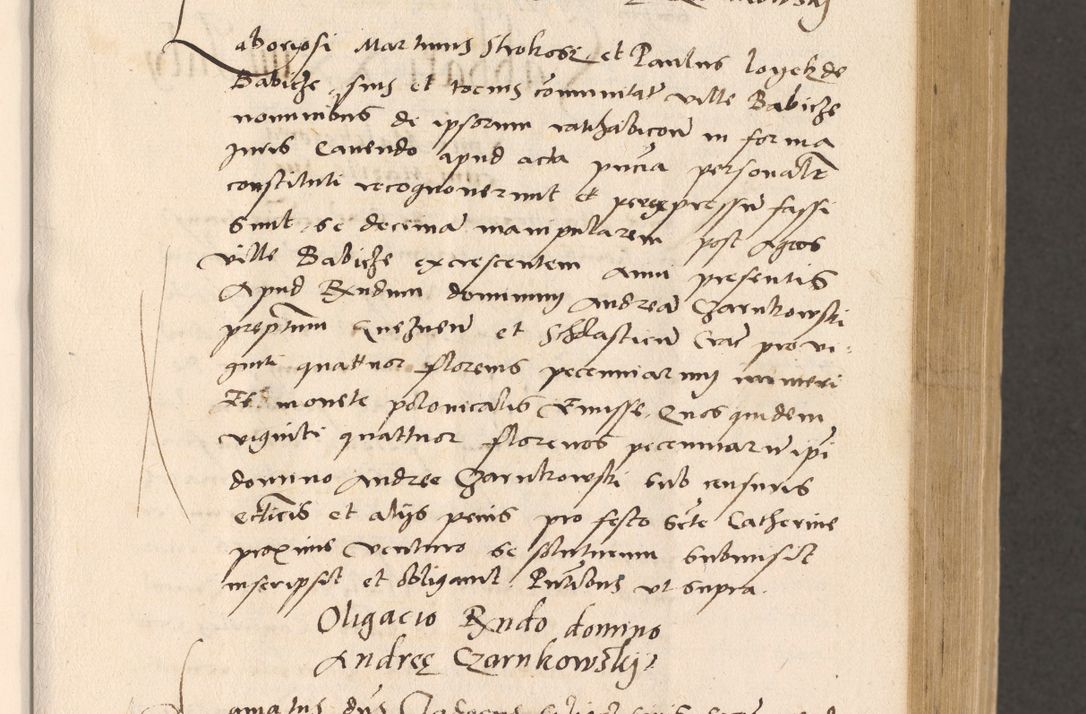 aboriosi Martinus Strokosz et Paulus loyek de
Babicze suis et tocius comunitat ville Babicze
nominibus de ipsorum rathabicoe in forma
Juris Cavendo apud acta pncia personalr
constituti recognoverunt et per expressu fassi
sunt se decima manipularem post agros
ville Babicze excrescentem anni presentis
Apud Rndum dominum Andrea Czarnkowski
preptum Gneznen et Scholasticu Crac pro vi
ginti quattuor florenis pecuniarum numeri
et monete polonicalis Emisse. Quos quidem
viginti quattuor florenos pecuniaru ipi
domino Andree Czarnkowski sub censuris
ecclicis et alijs penis pro festo Scte Catherine
proxime venturo se soluturum submisit
inscripsit et obligavit Pntibus ut supra.
Oligacio Rndo domino
Andreę Czarnkowskij
amatus dns